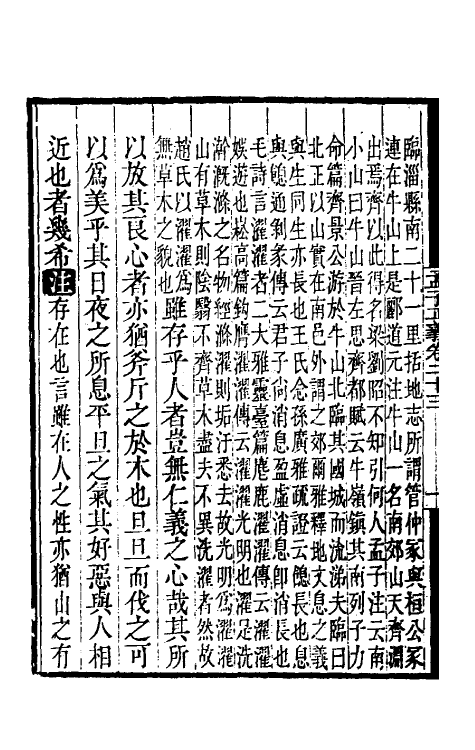 臨淄縣南二十一里括地志所謂管仲冢與桓公冢
連在牛山上是酈道元注牛山一名南郊山天齊淵
出焉齊以此得名梁劉昭不知引何人孟子注云南
小山曰牛山晉左思齊都賦云牛嶺鎮其南列子力
命篇齊景公游於牛山北臨其國城而流涕夫臨曰
北正以山實在南邑外謂之郊爾雅釋地文息之義
與生同生亦長也王氏念孫廣雅疏證云餽長也息
與餽通剝彖傳云君子尚消息盈虛消息卽消長也
毛詩言濯濯者二大雅靈臺篇麀鹿濯濯傳云濯濯
娛遊也崧高篇鉤膺濯濯傳云濯濯光明也濯是洗
澣溉滌之名物經滌濯則垢汙悉去故光明爲濯濯
山有草木則陰翳不齊草木盡去不異洗濯者然故
趙氏以濯濯爲
無草木之貌也
雖存乎人者豈無仁義之心哉其所
以放其良心者亦猶斧斤之於木也旦旦而伐之可
以爲美乎其日夜之所息平旦之氣其好惡與人相
近也者幾希注存在也言雖在人之性亦猶山之有
孟子正義卷二十三